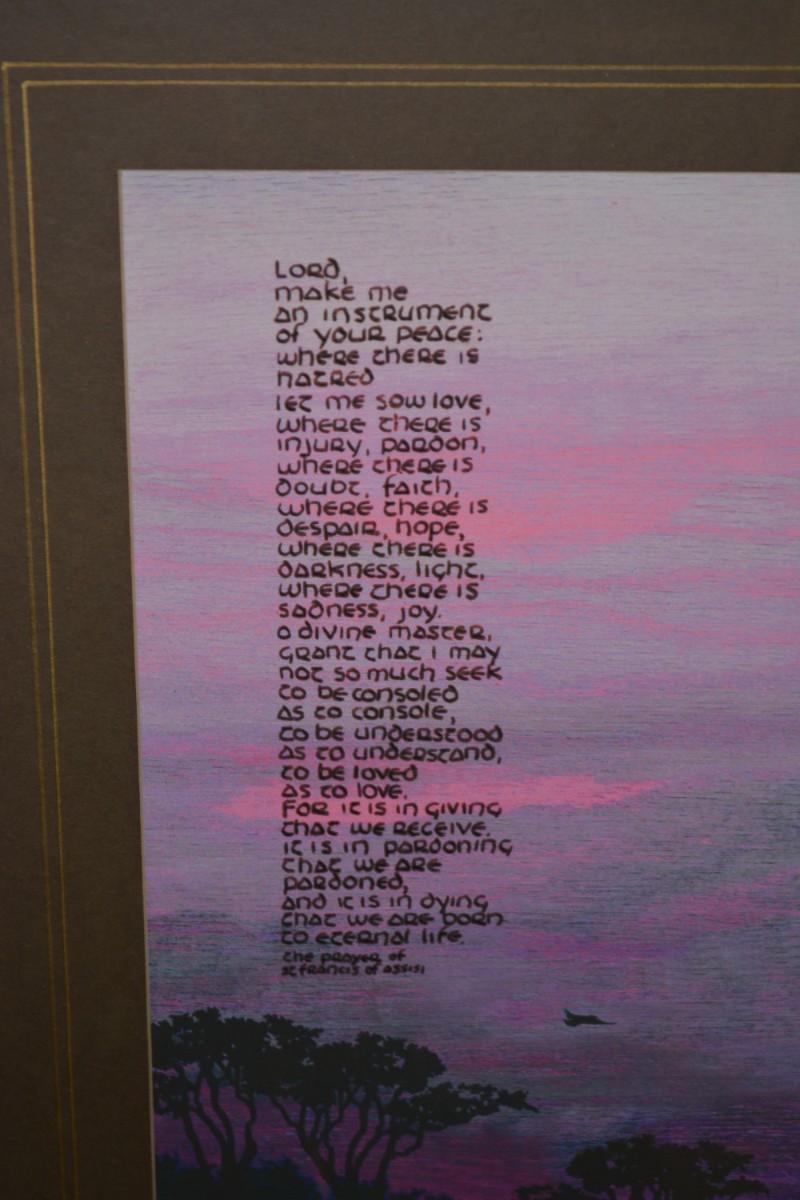 Lord,
make me
an instrument
of your peace:
where there is
hatred
let me sow love,
where there is
injury, pardon,
where there is
doubt, faith,
where there is
despair, hope,
where there is
darkness, light,
where there is
sadness, joy.
o divine master,
grant that i may
not so much seek
to be consoled
as to console,
to be understood
as to understand,
to be loved
as to love.
For it is in giving
that we receive.
it is in pardoning
that we are
pardoned,
and it is in dying
that we are born
to eternal life.
the prayer of
st francis of assisi